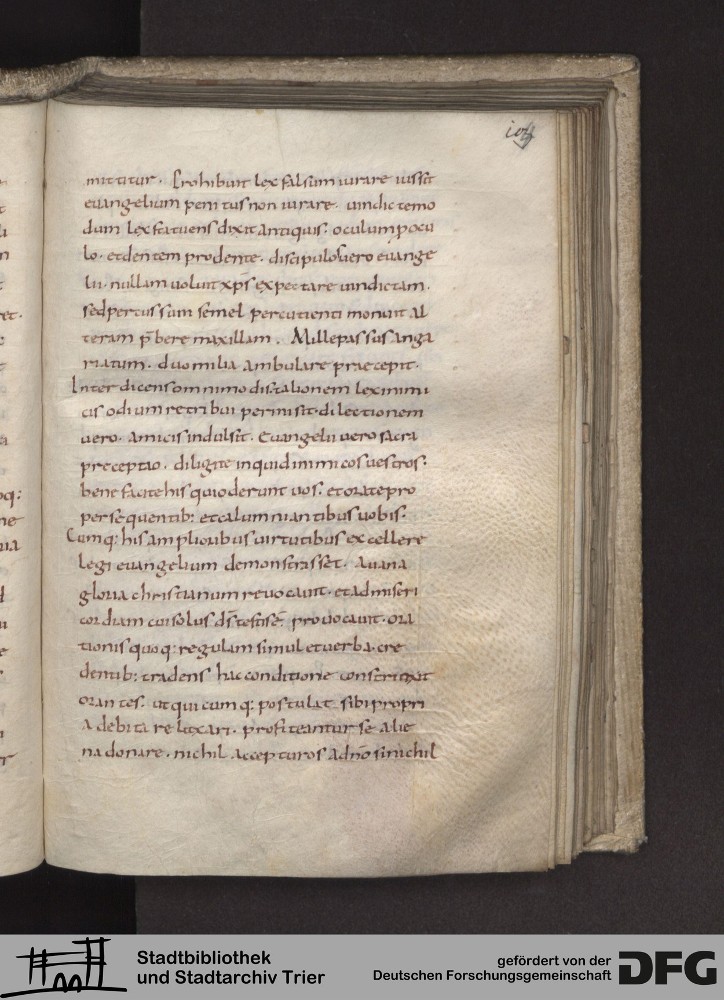 104
mittitur. Prohibuit lex falsum iurare iussit
euangelium penitus non iurare. uindictemo
dum lex statuens dixit antiquis. oculum p ocu
lo. et dentem pro dente. discipulos uero euange
lii. nullam uoluit xp̄s expectare uindictam.
sed percussum semel percutienti monuit al
teram p̄bere maxillam. Mille passus anga
riatum. duo milia ambulare praecepit.
Inter dicens omnimodis talionem lex inimi
cis odium retribui permisit. dilectionem
uero. amicis indulsit. Euangelii uero sacra
preceptio. diligite inquid inimicos uestros.
benefacite his qui oderunt uos. et orate pro
persequentib: et calumniantibus uobis.
Cumq: his amplioribus uirtutibus excellere
legi euangelium demonstrasset. A uana
gloria christianum reuocauit. et ad miseri
cordiam cui solus d̄s testis ē. prouocauit. ora
tionis quoq: regulam simul et uerba. cre
dentib: tradens hac conditione constringit
orantes. ut quicumq: postulat sibi propri
a debita relaxari. profiteantur se alie
na donare. nichil accepturos a dn̄o si nichil
Stadtbibliothek
und Stadtarchiv Trier
gefördert von der
Deutschen Forschungsgemeinschaft
DFG